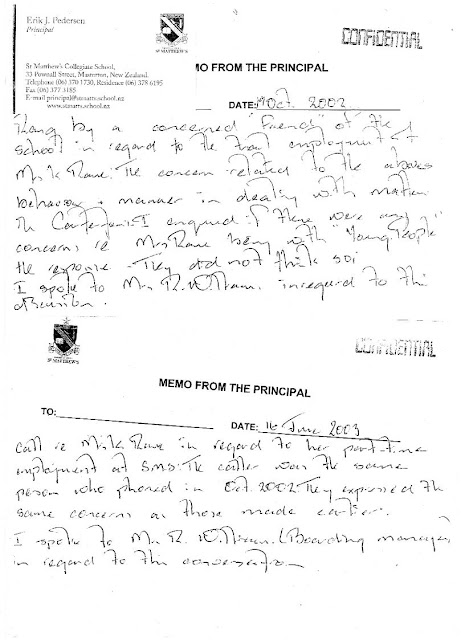 Erik J. Pedersen
Principal
ST MATTHEW'S
CONFIDENTIAL
St Matthew's Collegiate School,
33 Pownall Street, Masterton, New Zealand.
Telephone (06) 370 1730, Residence (06) 378 6195
Fax (06) 377 3185
E-mail principal@stmatts.school.nz
www.stmatts.school.nz
MO FROM THE PRINCIPAL
DATE: Oct. 2002
Rang by a concerned "Friend" of the
school in regard to the employment of
Ms K Rowe: The concern related to the
behaviour & manner in dealing with
I enquired if there were any
concerns re Mrs Rowe being with "Young People"
the response - They did not think so:
I spoke to Mr. R. in regard to this
discussion.
ST MATTHEW'S
CONFIDENTIAL
MEMO FROM THE PRINCIPAL
TO:
DATE: 16 June 2003
Call re Ms K Rowe in regard to her part-time
employment at SMS: The caller was the same
person who phoned in Oct. 2002. They expressed the
same concerns as those made earlier.
I spoke to Mr. R. (Boarding manager)
in regard to this conversation